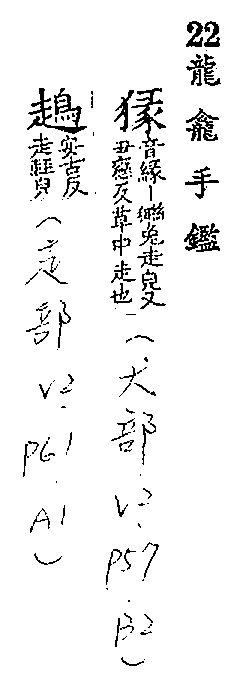 22龍龕手鑑
猭
音緣丨聯兔走皃又
丑戀反草中走也
(犬部 V2. P57. B2)
安古反
走輕皃
(走部 V2. P61. A1)